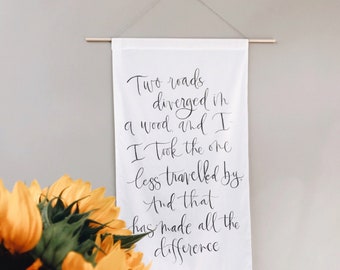 Two roads
diverged in
a wood, and I
I Took the one
less travelled by
And that
has made all the
difference